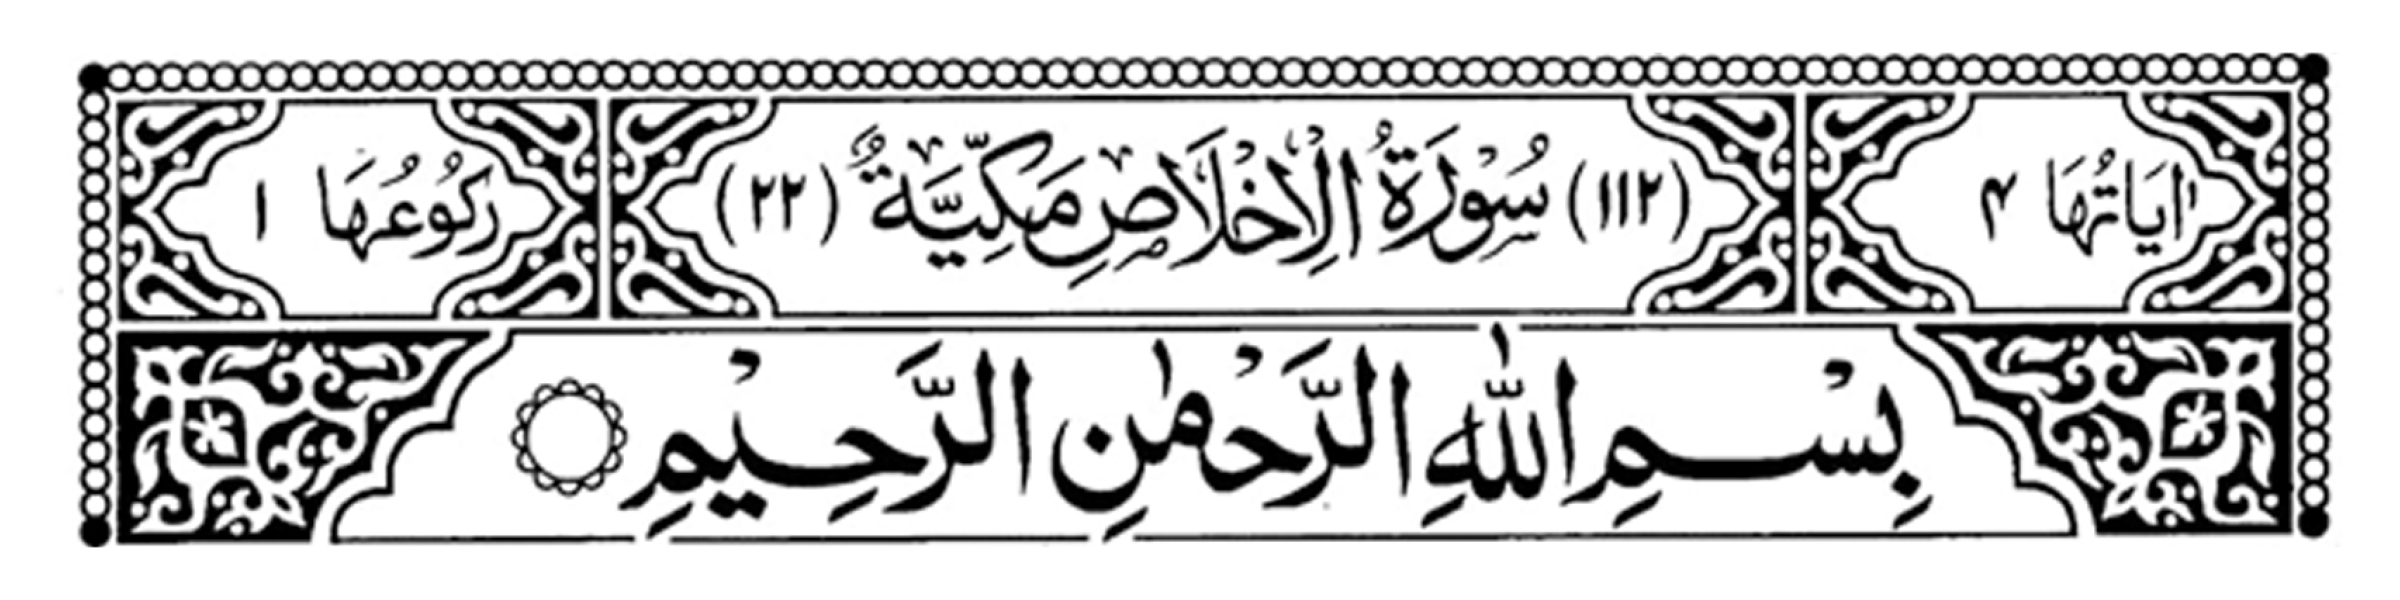 اٰيَاتُهَا ۴ (۱۱۲) سُوْرَةُ الْاِخْلَاصِ مَكِّيَّةٌ (۲۲) رَكُوْعُهَا ۱
بِسْمِ اللّٰهِ الرَّحْمٰنِ الرَّحِيْمِ